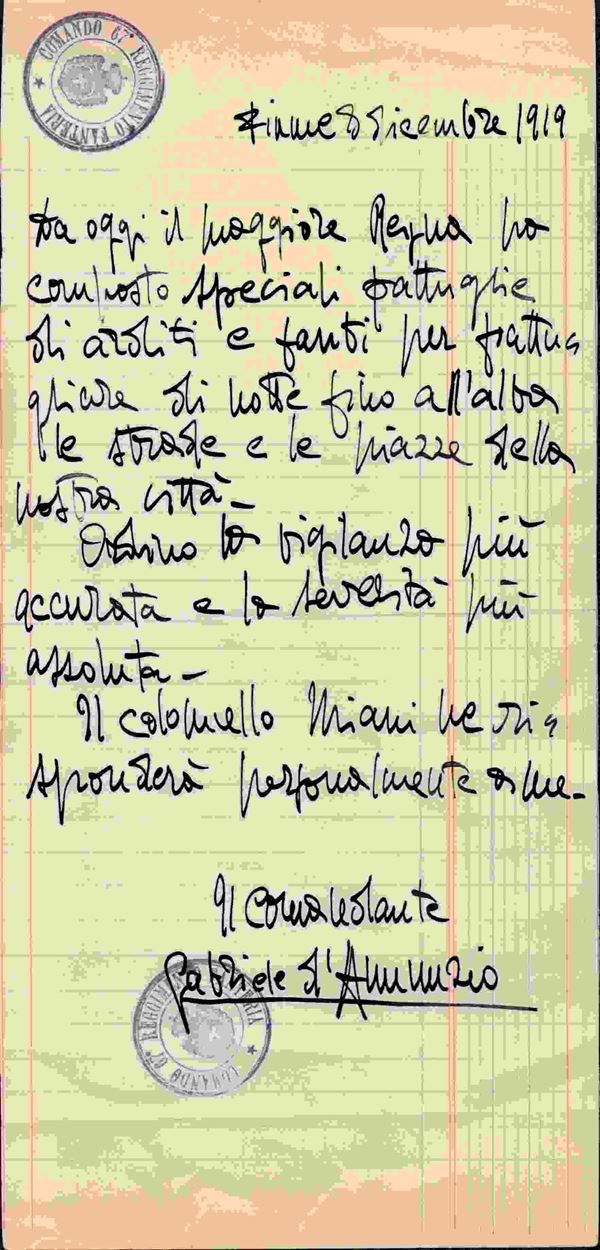 COMANDO 67° REGGIMENTO FANTERIA
Fiume 8 dicembre 1919
Da oggi il maggiore Reyna ha
composto speciali pattuglie
di arditi e fanti per pattu=
gliare di notte fino all'alba
le strade e le piazze della
nostra città_
Ordino la vigilanza più
accurata e la severità più
assoluta_
Il colonnello Miani ne ri=
sponderà personalmente a me_
Il Comandante
Gabriele d'Annunzio
COMANDO 67° REGGIMENTO FANTERIA